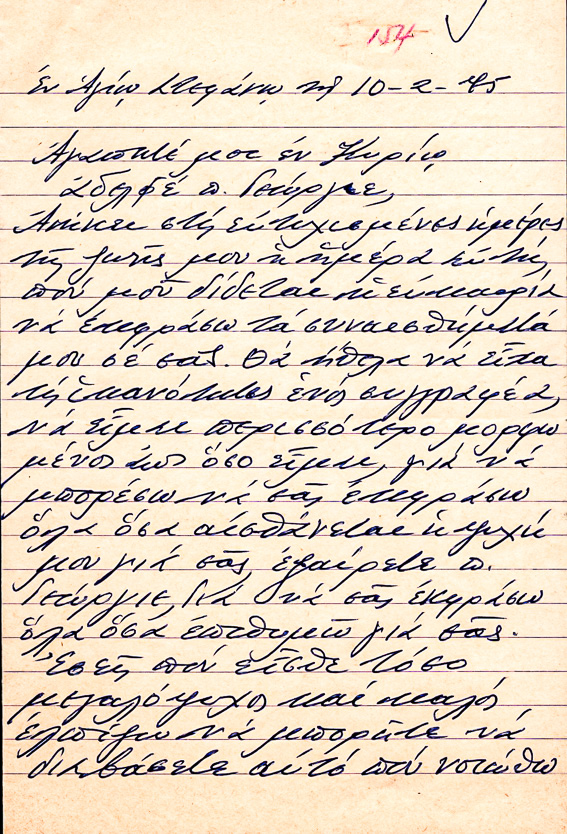 154
ἐν Ἁγίῳ Στεφάνῳ τῇ 10-2-75
Ἀγαπητέ μου ἐν Κυρίῳ
ἀδελφέ π. Γεώργιε,
Ἀνήκει στίς εὐτυχισμένες ἡμέρες
τῆς ζωῆς μου ἡ ἡμέρα αὐτή,
πού μοῦ δίδεται ἡ εὐκαιρία
νά ἐκφράσω τά συναισθήματά
μου σέ σᾶς. Θά ἤθελα νά εἶχα
τίς ἱκανότητες ἑνός συγγραφέα,
νά εἶμαι περισσότερο μορφω
μένος ἀπ' ὅσο εἶμαι, γιά νά
μπορέσω νά σᾶς ἐκφράσω
ὅλα ὅσα αἰσθάνεται ἡ ψυχή
μου γιά σᾶς, ἐξαίρετε π.
Γεώργιε, διά νά σᾶς ἐκφράσω
ὅλα ὅσα ἐπιθυμῶ γιά σᾶς.
Ἐσεῖς πού εἶσθε τόσο
μεγαλόψυχος καί καλός
ἐλπίζω νά μπορῆτε νά
διαβάσετε αὐτό πού νοιώθω